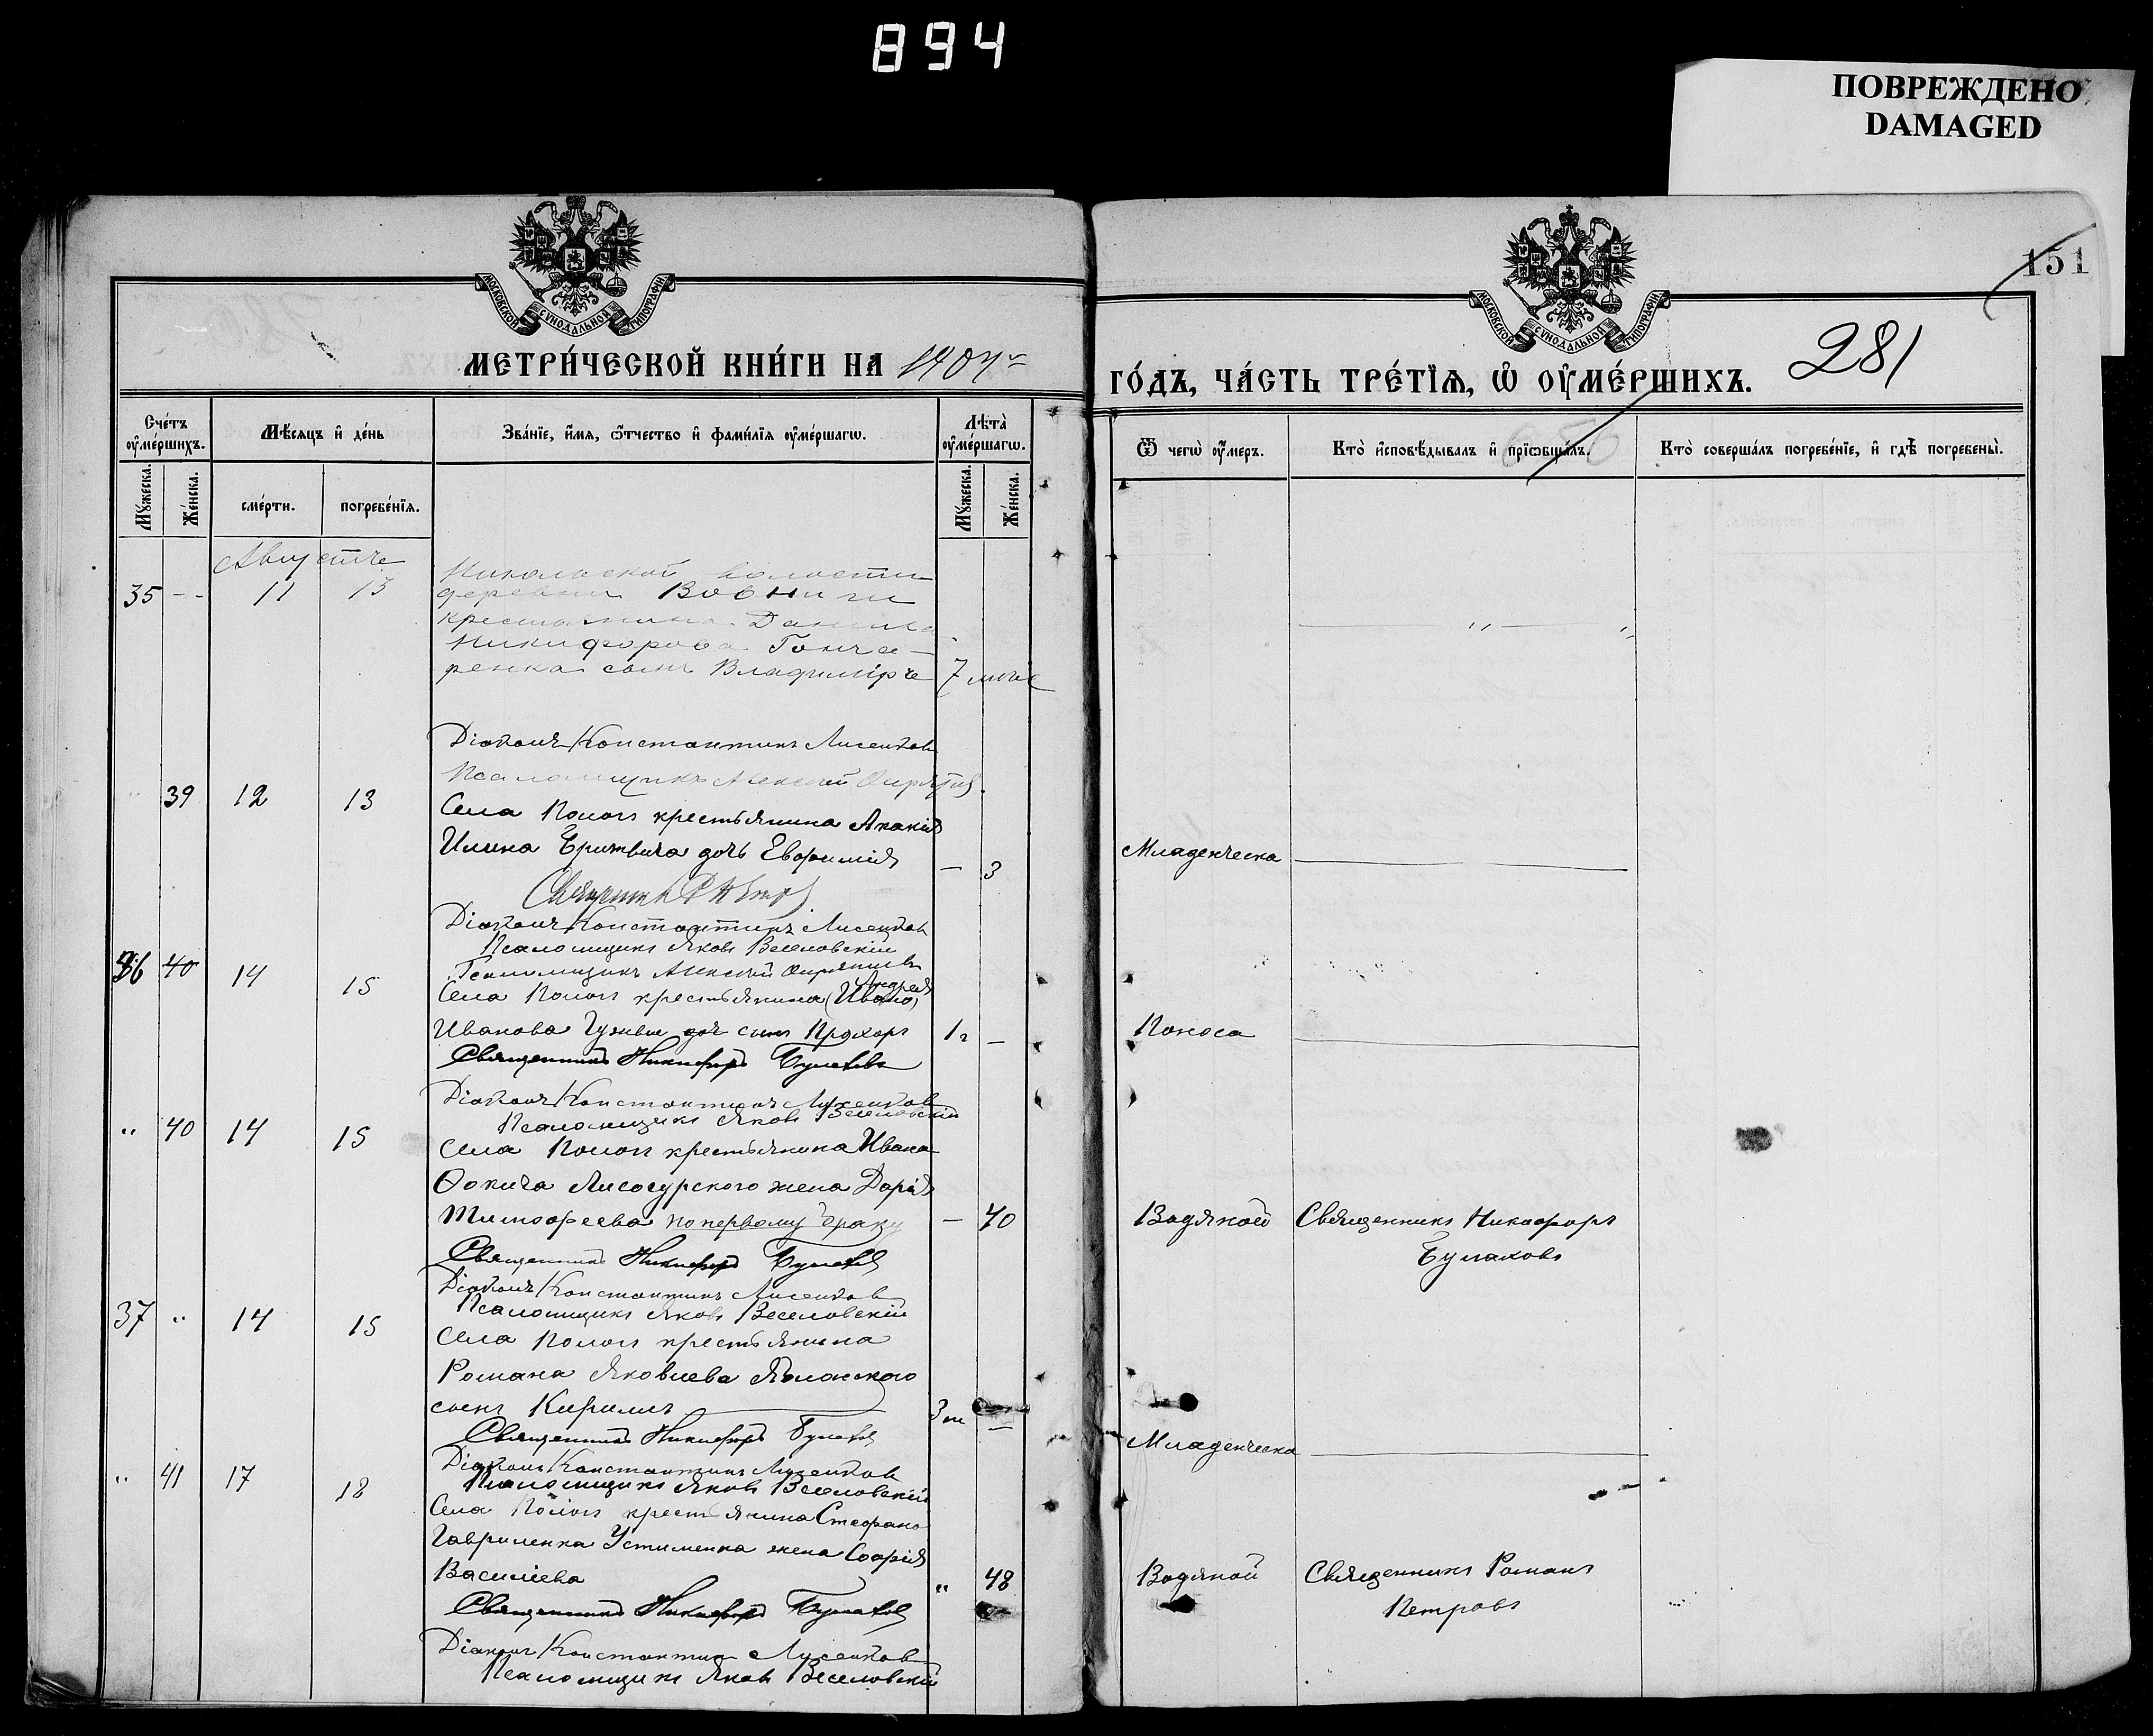 894
ПОВРЕЖДЕНО
DAMAGED
151
МОСКОВСКОЙ СѴНОДАЛЬНОЙ ТИПОГРАФІИ
МОСКОВСКОЙ СѴНОДАЛЬНОЙ ТИПОГРАФІИ
МЕТРИ́ЧЕСКОЙ КНИ́ГИ НА
ГО́ДЪ, ЧА́СТЬ ТРЕ́ТІѦ, Ѽ ОУ҆МЕ́РШИХЪ.
281
Сче́тъ оу҆ме́ршихъ.
Мѣ́сяцъ и҆ де́нь
Зва́ніе, и҆́мя, ѻ҆́тчество и҆ фами́лія оу҆ме́ршагѡ.
Лѣта̀ оу҆ме́ршагѡ.
Ѿ чегѡ̀ оу҆́меръ.
Кто̀ и҆сповѣ́дывалъ и҆ прїѡбща́лъ.
Кто̀ соверша́лъ погребе́ніе, и҆ гдѣ̀ погребены̀.
Мꙋ́жеска.
Же́нска.
сме́рти.
погребе́нїя.
Мꙋ́жеска.
Же́нска.
Августа
35 - - 11 13
Никольской волости
деревни Вовниги
крестьянина Данила
Никифорова Гонча-
ренка сынъ Владиміръ 7
Діаконъ Константинъ Лисенков
Псаломщикъ Алексѣй
" 39 12 13
Села Пологъ крестьянина Акакія
Илина дочь Евфимія — 3 Младенческа
Діаконъ Константинъ Лисенков
Псаломщикъ Яковъ Веселовскій
Псаломщикъ Алексѣй
36 40 14 15
Села Пологъ крестьянина (Ивана) Андрея
Иванова сынъ Прохоръ 1г — Поноса
Священникъ Никифоръ Булахов
Діаконъ Константинъ Лисенков
Псаломщикъ Яковъ Веселовскій
" 40 14 15
Села Пологъ крестьянина Ивана
Ѳокича Лисогурского жена Дарія
Тимофеева по первому браку — 40 Водяной Священникъ Никифоръ
Булаховъ
Священникъ Никифоръ Булахов
Діаконъ Константинъ Лисенков
Псаломщикъ Яковъ Веселовскій
37 " 14 15
Села Пологъ крестьянина
Романа Яковлева Яблонского
сынъ Кирилъ 3 м — Младенческа
Священникъ Никифоръ Булахов
Діаконъ Константинъ Лисенков
Псаломщикъ Яковъ Веселовскій
" 41 17 18
Села Пологъ крестьянина Стефана
Гавриленка Устименка жена Софія
Василіева " 48 Водяной Священникъ Романъ
Петровъ
Священникъ Никифоръ Булахов
Діаконъ Константин Лисенков
Псаломщикъ Яковъ Веселовскій